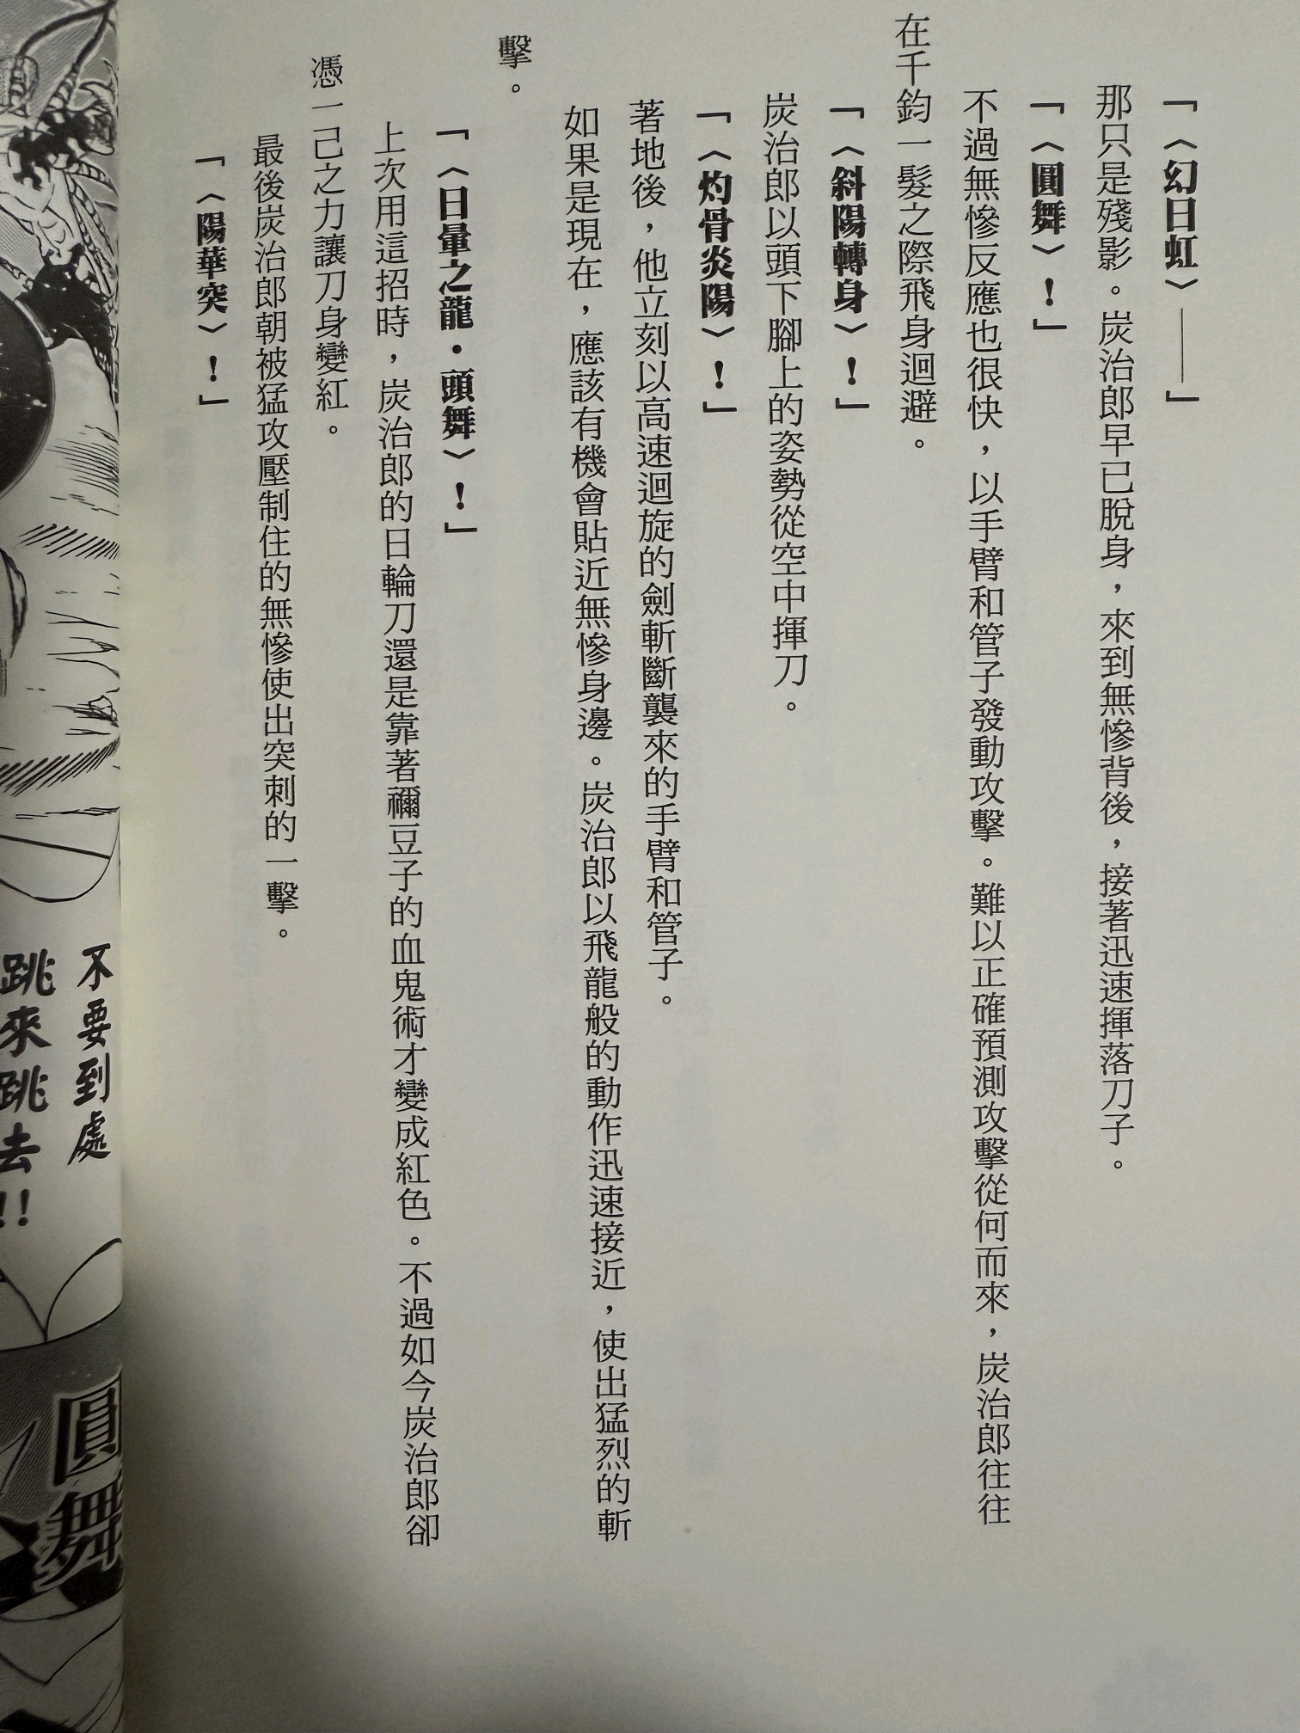 「〈幻日虹〉——」
那只是殘影。炭治郎早已脫身，來到無慘背後，接著迅速揮落刀子。
「〈圓舞〉！」
不過無慘反應也很快，以手臂和管子發動攻擊。難以正確預測攻擊從何而來，炭治郎往往
在千鈞一髮之際飛身迴避。
「〈斜陽轉身〉！」
炭治郎以頭下腳上的姿勢從空中揮刀。
「〈灼骨炎陽〉！」
著地後，他立刻以高速迴旋的劍斬斷襲來的手臂和管子。
如果是現在，應該有機會貼近無慘身邊。炭治郎以飛龍般的動作迅速接近，使出猛烈的斬
擊。
「〈日暈之龍・頭舞〉！」
上次用這招時，炭治郎的日輪刀還是靠著禰豆子的血鬼術才變成紅色。不過如今炭治郎卻
憑一己之力讓刀身變紅。
最後炭治郎朝被猛攻壓制住的無慘使出突刺的一擊。
「〈陽華突〉！」
不要到處
跳來跳去!!
圓舞